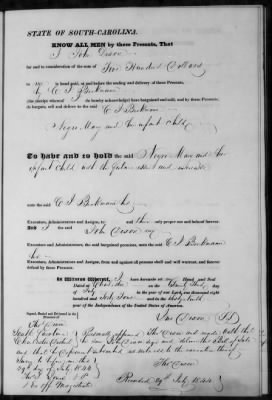 STATE OF SOUTH-CAROLINA.
KNOW ALL MEN by these Presents, That
I John Dixon
for and in consideration of the sum of Five Hundred Dollars
to me in hand paid, at and before the sealing and delivery of these Presents,
by C I Beckman
(the receipt whereof I do hereby acknowledge) have bargained and sold, and by these Presents,
do bargain, sell and deliver to the said C I Beckman
Negro May and her infant child
To have and to hold the said Negro May and her
infant Child with the future issue and increase
unto the said C I Beckman his
Executors, Administrators and Assigns, to and their only proper use and behoof forever.
And I the said John Dixon my
Executors, Administrators and Assigns, the said bargained premises, unto the said C I Beckman
his
Executors, Administrators and Assigns, from and against all persons shall and will warrant, and forever
defend by these Presents.
In Witness Whereof, I have hereunto set my Hand and Seal
Dated at Charleston on the day of
July in the year of our Lord one thousand eight
hundred and forty four and in the sixty ninth
year of the Independence of the United States of America.
Signed, Sealed and Delivered in the
Presence of
Jno Dixon
South Carolina
Charleston District Personally appeared Tho Dixon and made Oath that
he saw John Dixon sign and deliver the Bill of Sale
and that he subscribed as witness to the execution thereof
Sworn to before me this
29th day of July 1844
Ex off Magistrate
Tho Dixon
Recorded 29th July 1844